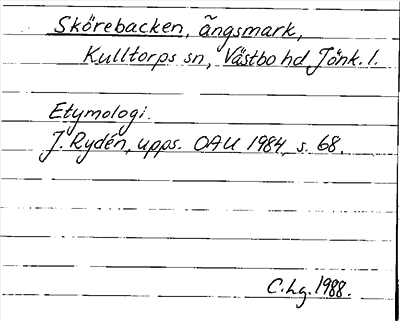 Skörebacken, ängsmark,
Kulltorps sn, Västbo hd Jönk. l.
Etymologi.
J. Rydén, upps. OAU 1984, s. 68.
C. Lg. 1988.